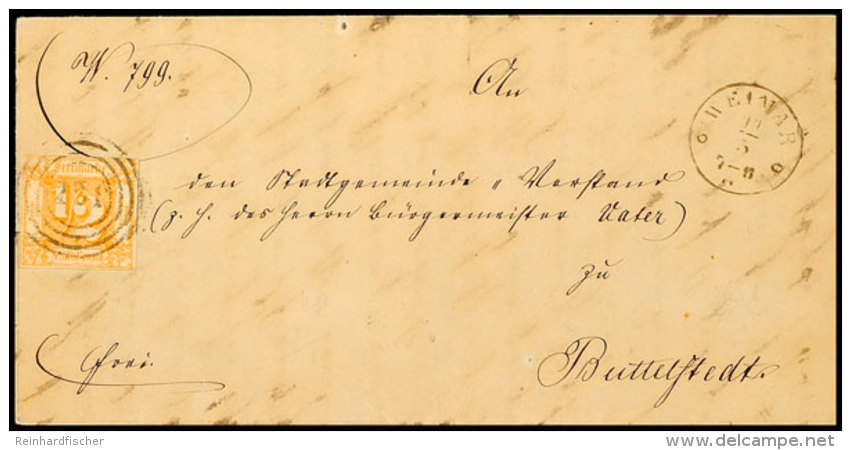 N. 799.
An
WEIMAR
den Stadtgemeinde-Vorstand
(z. H. des Herrn Bürgermeister Vater)
zu
Buttelstedt.
frei.
Reinhardfischer
delcampe.net